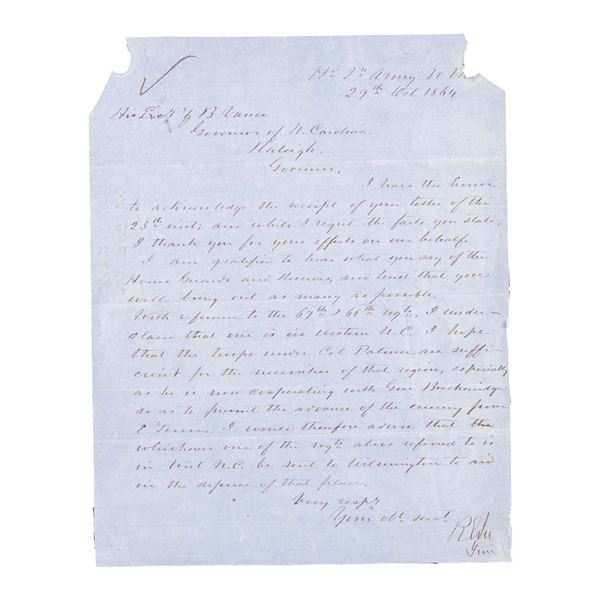 Hd Qrs Army N Va
29th Oct 1864
His Excy Z B Vance
Governor of N. Carolina.
Raleigh.
Governor,
I have the honor
to acknowledge the receipt of your letter of the
25th inst; and while I regret the facts you state,
I thank you for your efforts on our behalf.
I am gratified to hear what you say of the
Home Guards and Reserves, and trust that you
will bring out as many as possible.
With reference to the 67th & 68th regts, I under-
stand that one is in western N.C. I hope
that the troops under Col Palmer are suffi-
cient for the necessities of that region, especially
as he is now cooperating with Gen Breckinridge
so as to prevent the advance of the enemy from
E Tenn. I would therefore advise that the
whichever one of the regts above referred to is
in West N.C. be sent to Wilmington to aid
in the defence of that place.
Very respy
Your obt servt
R E Lee
Genl